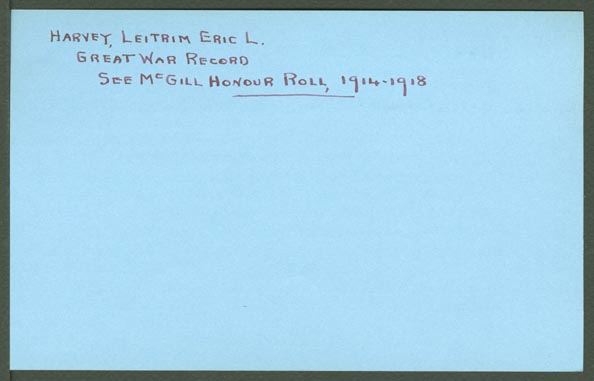 HARVEY, LEITRIM ERIC L.
GREAT WAR RECORD
SEE McGILL HONOUR ROLL, 1914-1918